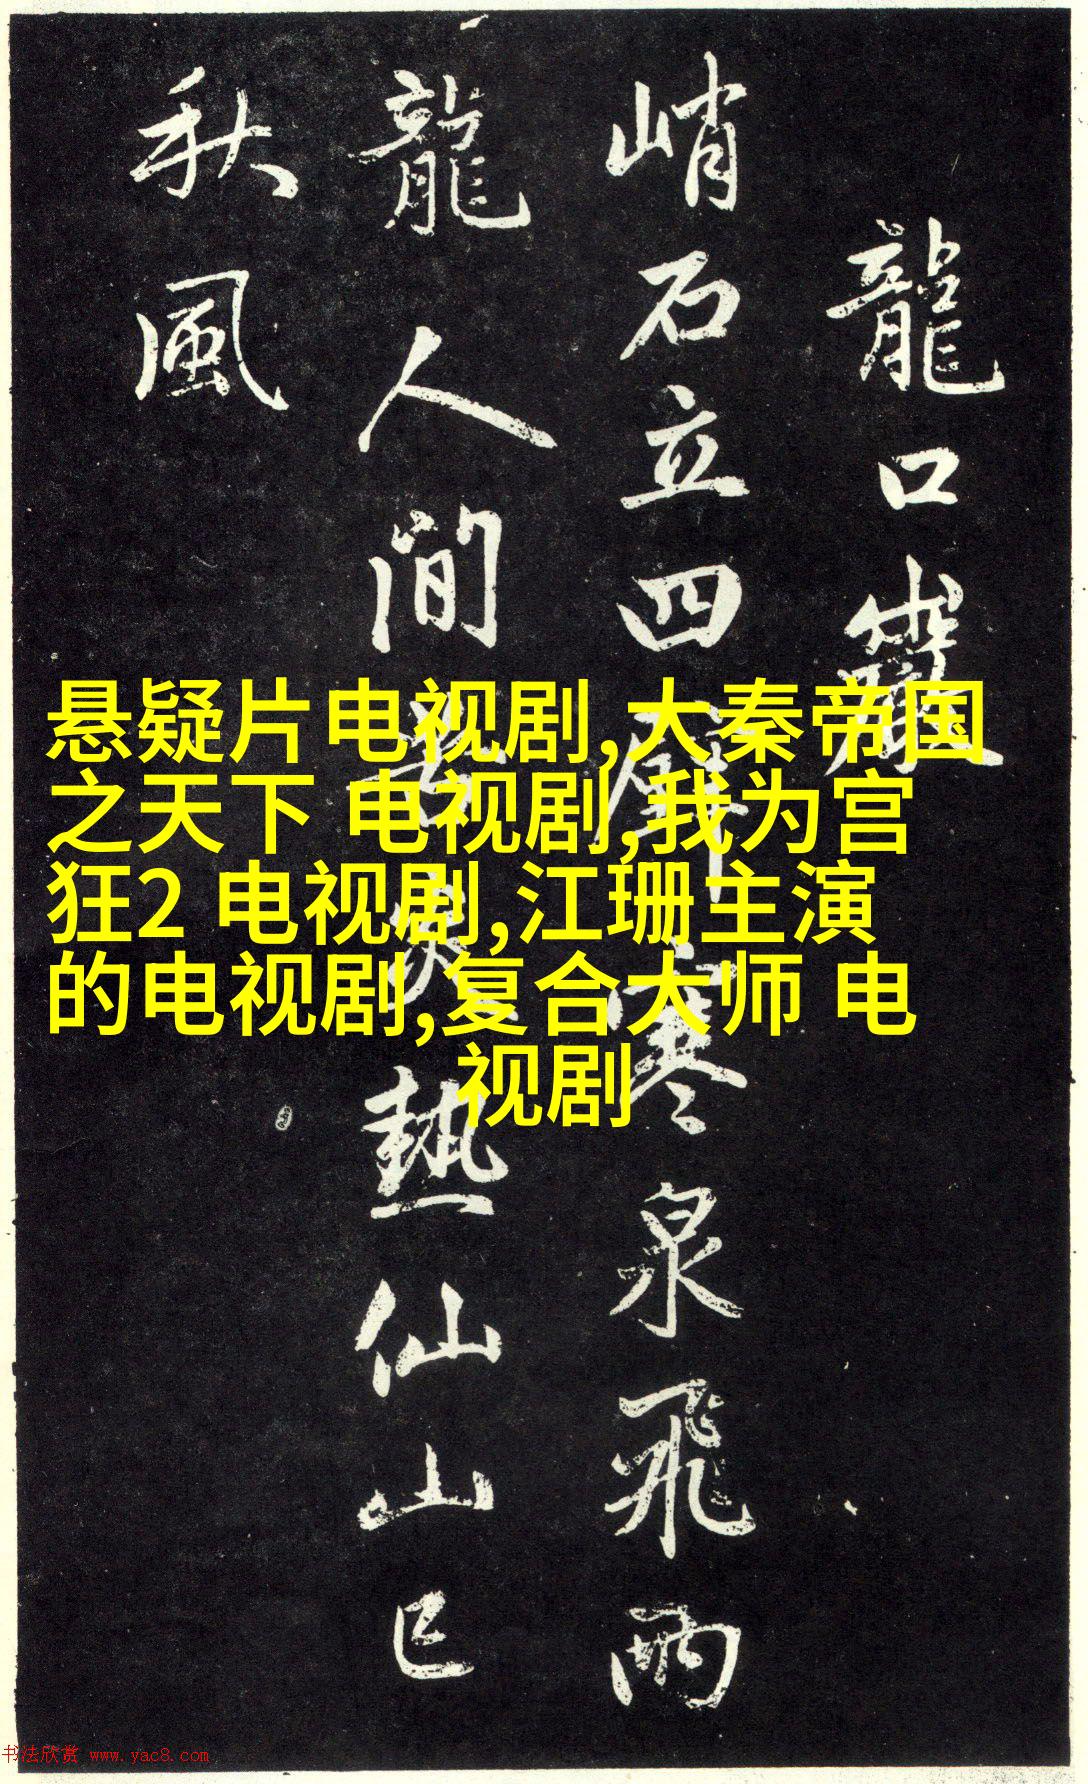 龍口巖
峭石立四壁寒泉飛兩
龍人間苦炎熱仙山已
秋風
悬疑片电视剧,大秦帝国
之天下 电视剧,我为宫
狂2 电视剧,江珊主演
的电视剧,复合大师 电
视剧
书法欣赏 www.yac8.com